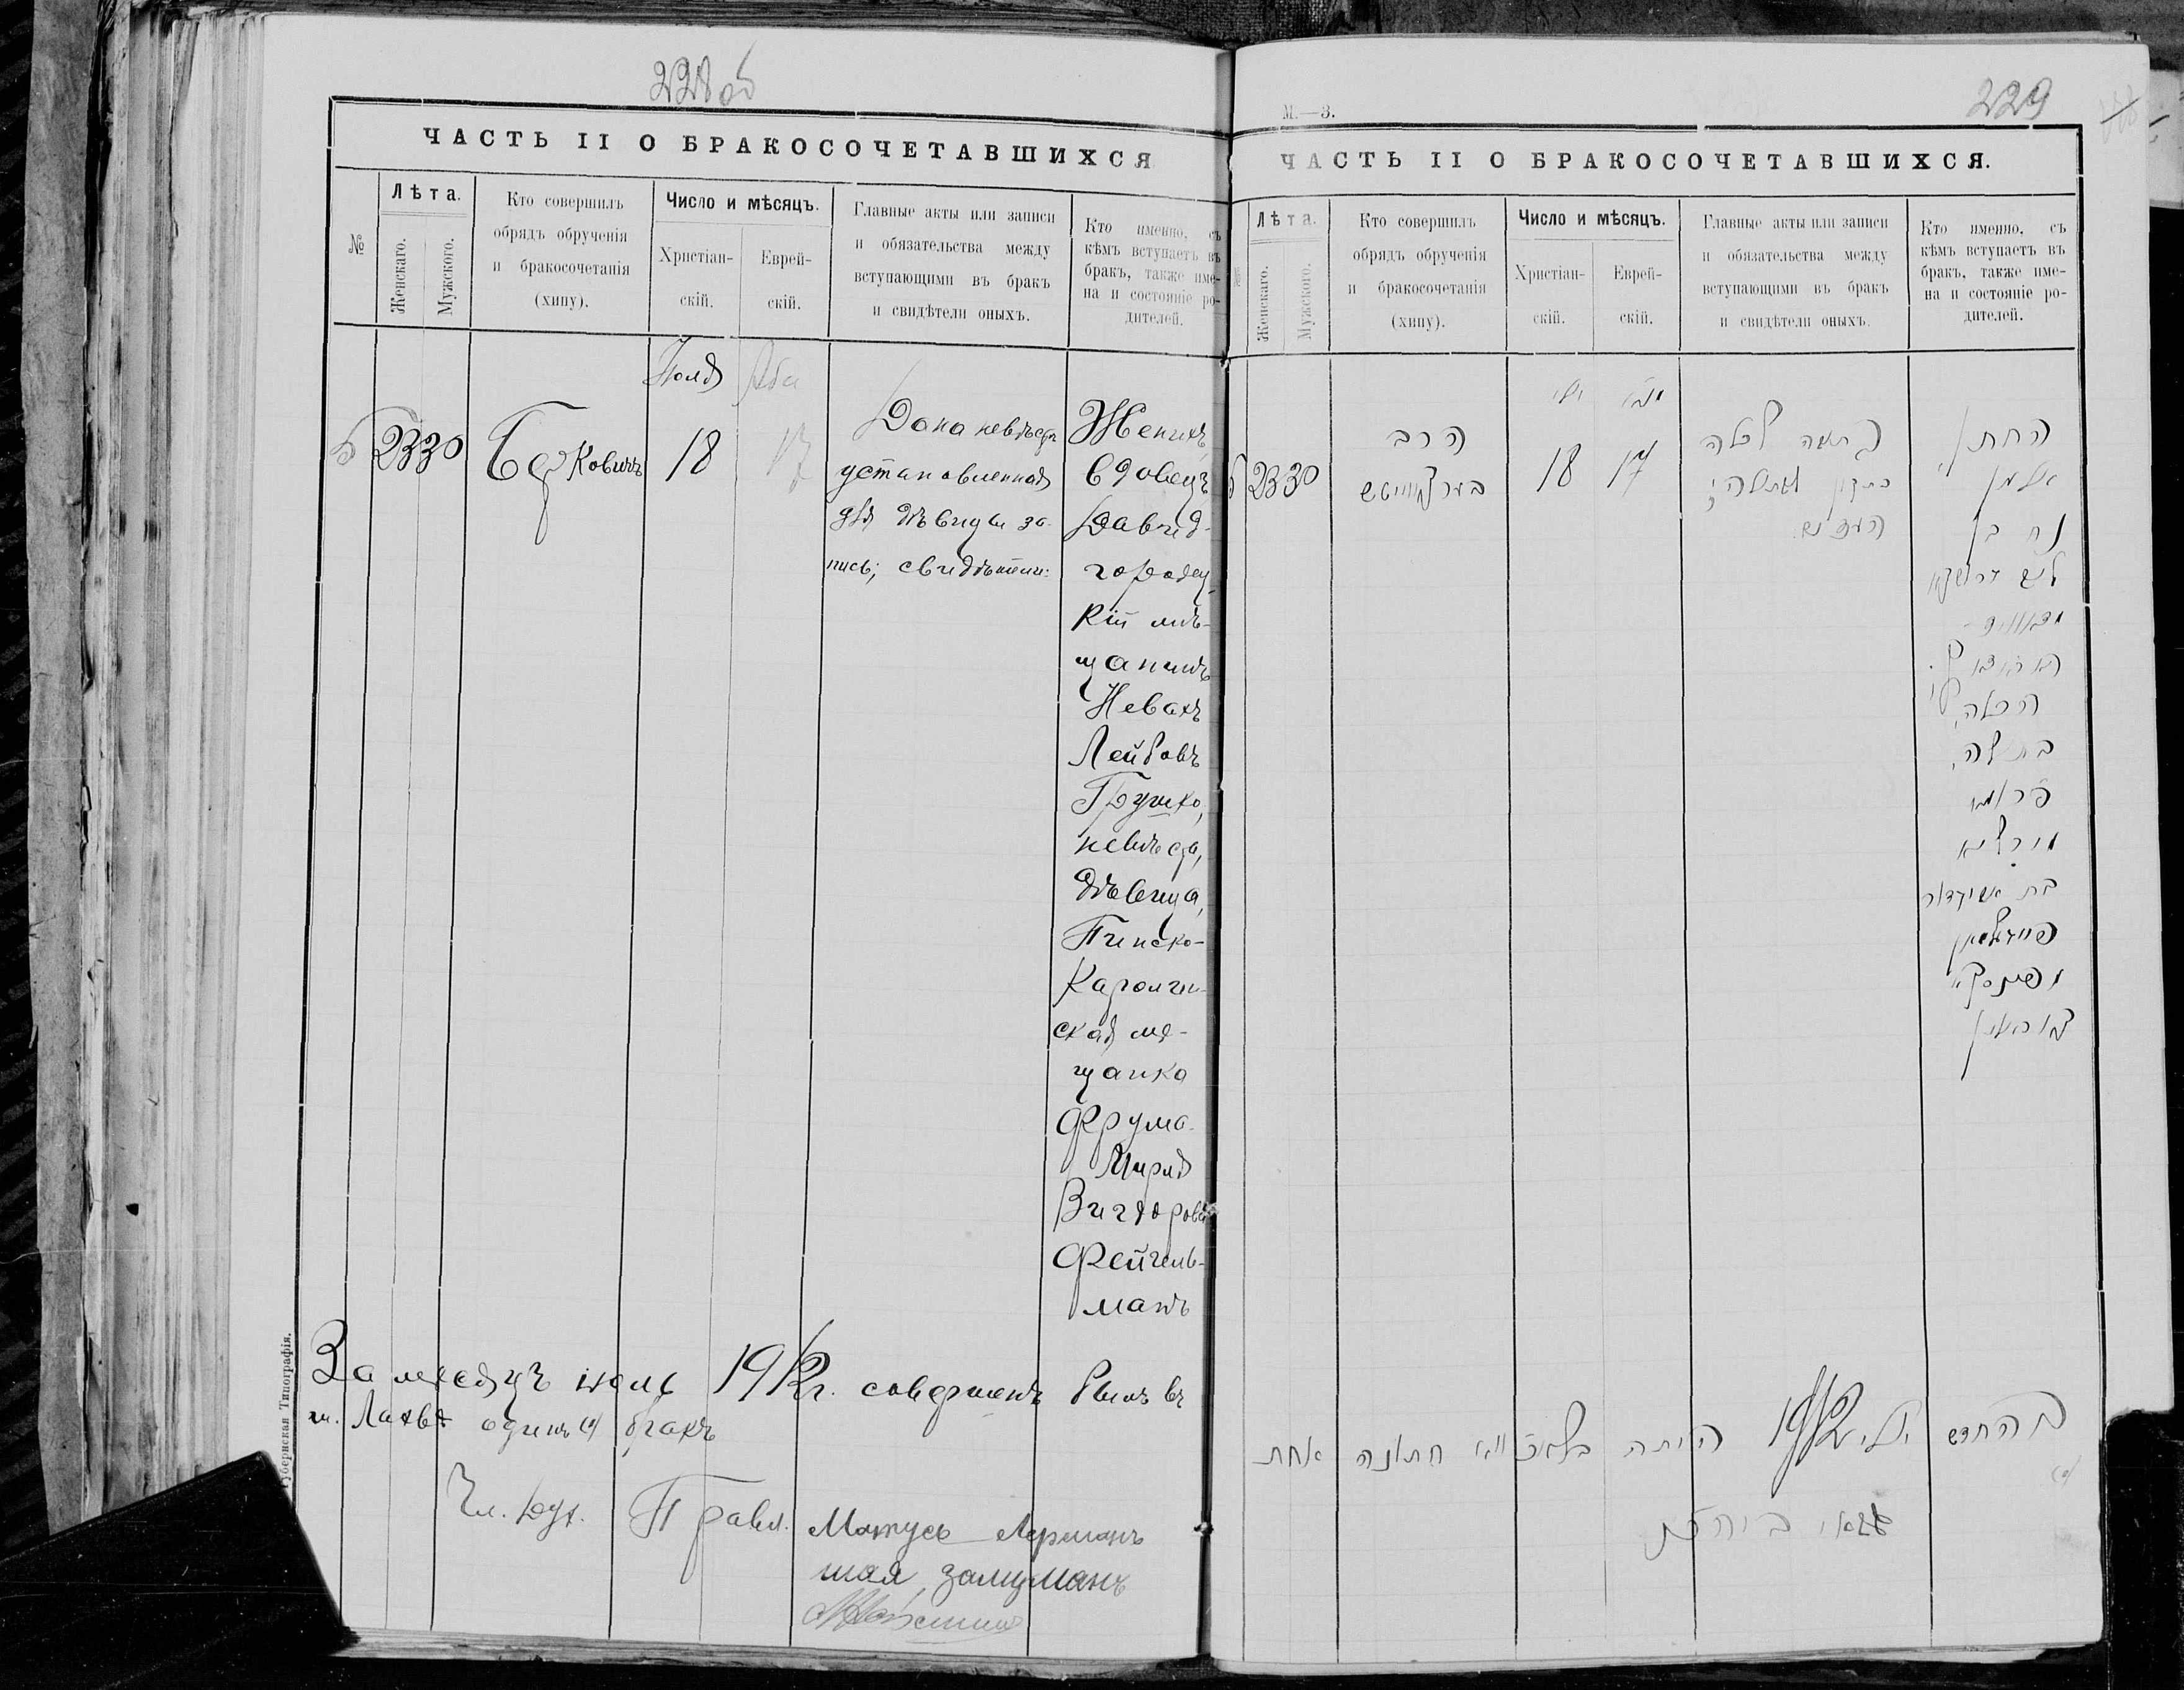 228 об
ЧАСТЬ II О БРАКОСОЧЕТАВШИХСЯ
№
Лѣта.
Женскаго.
Мужскаго.
Кто совершилъ
обрядъ обрученія
и бракосочетанія
(хипу).
Число и мѣсяцъ.
Христіан-
скій.
Еврей-
скій.
Главные акты или записи
и обязательства между
вступающими въ бракъ
и свидѣтели оныхъ.
Кто именно, съ
кѣмъ вступаетъ въ
бракъ, также име-
на и состояніе ро-
дителей.
Іюля Аба
5 23 30 Берковичъ 18 17
Дана невѣстѣ
установленная
для дѣвицы за-
пись; свидѣтели:
Женихъ
вдовецъ
Давид-
городец-
кій мѣ-
щанинъ
Невахъ
Лейбовъ
Грушко,
невѣста,
дѣвица,
Пинско-
Каролин-
ская мѣ-
щанка
Фрума
Мирля
Вигдорова
Фейгель-
манъ
За мѣсяцъ іюль 1912 г. совершенъ былъ въ
м. Лахвѣ одинъ (1) бракъ
Чл. Дух. Правл. Матусъ Лерманъ
Губернская Типографія.
М.—3.
229
ЧАСТЬ II О БРАКОСОЧЕТАВШИХСЯ.
№
Лѣта.
Женскаго.
Мужскаго.
Кто совершилъ
обрядъ обрученія
и бракосочетанія
(хипу).
Число и мѣсяцъ.
Христіан-
скій.
Еврей-
скій.
Главные акты или записи
и обязательства между
вступающими въ бракъ
и свидѣтели оныхъ.
Кто именно, съ
кѣмъ вступаетъ въ
бракъ, также име-
на и состояніе ро-
дителей.
יולי
5 23 30
הרב
בערקאוויטש
18 17
לכלה
כדין
החתן
אלמן
נח בן
הכלה
בתולה
פרומא
מירליא
בת אביגדור
פייגלמאן
מפינסק
קאראלין
החדש יולי 1912 היתה חתונה אחת